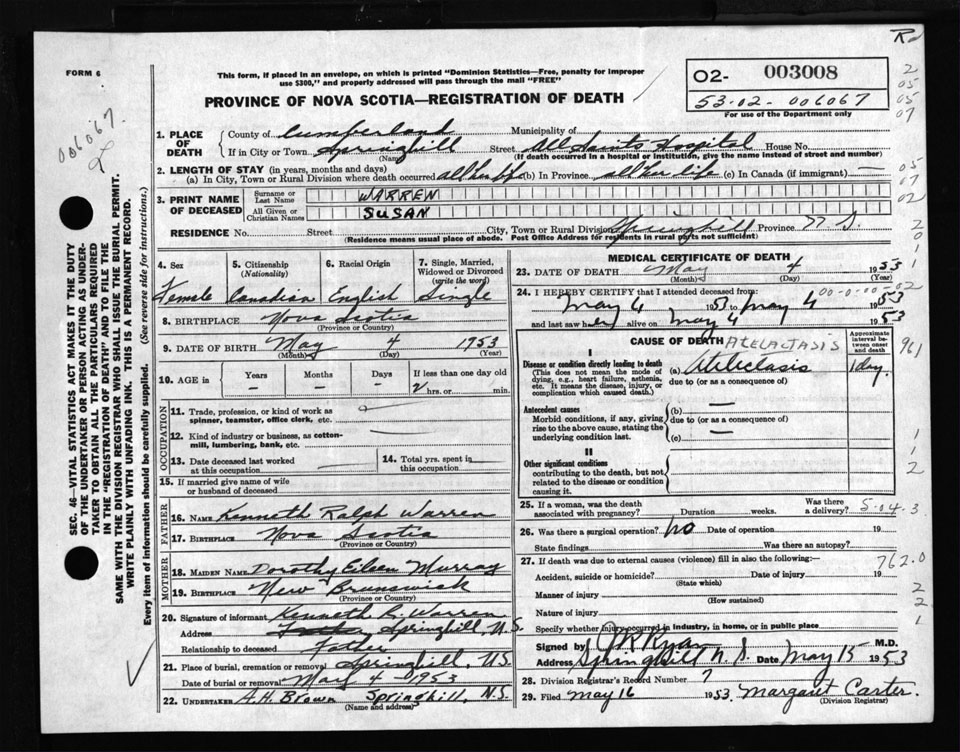 R
FORM 6
This form, if placed in an envelope, on which is printed "Dominion Statistics—Free, penalty for improper
use $300," and properly addressed will pass through the mail "FREE"
PROVINCE OF NOVA SCOTIA—REGISTRATION OF DEATH
02- 003008
53-02-006067
For use of the Department only
2
05
05
07
006067
SEC. 46—VITAL STATISTICS ACT MAKES IT THE DUTY
OF THE UNDERTAKER OR PERSON ACTING AS UNDER-
TAKER TO OBTAIN ALL THE PARTICULARS REQUIRED
IN THE "REGISTRATION OF DEATH" AND TO FILE THE
SAME WITH THE DIVISION REGISTRAR WHO SHALL ISSUE THE BURIAL PERMIT.
WRITE PLAINLY WITH UNFADING INK. THIS IS A PERMANENT RECORD.
Every item of information should be carefully supplied. (See reverse side for instructions.)
1. PLACE OF DEATH
County of Cumberland Municipality of
If in City or Town Springhill Street All Saints Hospital House No.
(Name) (If death occurred in a hospital or institution, give the name instead of street and number)
2. LENGTH OF STAY (in years, months and days)
(a) In City, Town or Rural Division where death occurred all her life (b) In Province all her life (c) In Canada (if immigrant)
05
07
02
3. PRINT NAME OF DECEASED
Surname or Last Name WARREN
All Given or Christian Names SUSAN
RESIDENCE No. Street City, Town or Rural Division Springhill Province N S.
(Residence means usual place of abode. Post Office Address for residents in rural parts not sufficient)
4. Sex Female
5. Citizenship (Nationality) Canadian
6. Racial Origin English
7. Single, Married, Widowed or Divorced (write the word) Single
8. BIRTHPLACE Nova Scotia
(Province or Country)
9. DATE OF BIRTH May 4 1953
(Month) (Day) (Year)
10. AGE in Years Months Days If less than one day old
- - - 2 hrs. or min.
OCCUPATION
11. Trade, profession, or kind of work as
spinner, teamster, office clerk, etc.
12. Kind of industry or business, as cotton-
mill, lumbering, bank, etc.
13. Date deceased last worked
at this occupation
14. Total yrs. spent in
this occupation
15. If married give name of wife
or husband of deceased
FATHER
16. NAME Kenneth Ralph Warren
17. BIRTHPLACE Nova Scotia
(Province or Country)
MOTHER
18. MAIDEN NAME Dorothy Eileen Murray
19. BIRTHPLACE New Brunswick
(Province or Country)
20. Signature of informant Kenneth R. Warren
Address Father Springhill, N.S.
Relationship to deceased Father
21. Place of burial, cremation or removal Springhill, N.S.
Date of burial or removal May 4 1953
22. UNDERTAKER A.H. Brown Springhill, N.S.
(Name and address)
MEDICAL CERTIFICATE OF DEATH
23. DATE OF DEATH May 4 1953
(Month) (Day) (Year)
24. I HEREBY CERTIFY that I attended deceased from: 00-0-00-00-02
May 4 1953 to May 4 1953
and last saw her alive on May 4 1953
CAUSE OF DEATH ATELACTASIS
Approximate interval between onset and death
I
Disease or condition directly leading to death
(This does not mean the mode of
dying, e.g., heart failure, asthenia,
etc. It means the disease, injury, or
complication which caused death.)
(a) Atelectasis 1 day.
due to (or as a consequence of)
Antecedent causes
Morbid conditions, if any, giving
rise to the above cause, stating the
underlying condition last.
(b) —
due to (or as a consequence of)
(c) —
II
Other significant conditions
contributing to the death, but not
related to the disease or condition
causing it.
25. If a woman, was the death
associated with pregnancy? Duration weeks. Was there a delivery? 5-04-3
26. Was there a surgical operation? no Date of operation 19
State findings Was there an autopsy?
27. If death was due to external causes (violence) fill in also the following:—
762.0
Accident, suicide or homicide? Date of injury 19
(State which)
Manner of injury
(How sustained)
Nature of injury
Specify whether injury occurred in industry, in home, or in public place
Signed by JR Ryan M.D.
Address Springhill N.S. Date May 15 1953
28. Division Registrar's Record Number 7
29. Filed May 16 1953. Margaret Carter.
(Division Registrar)